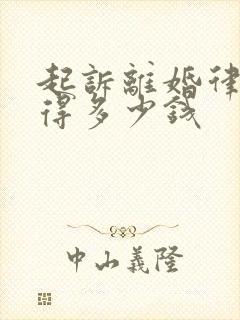 起訴離婚律
得多少錢
中山義隆